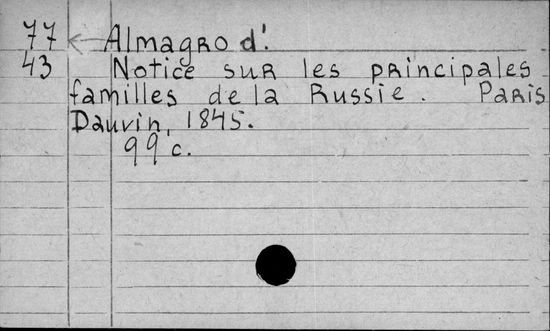 77 ← Almagro d'.
43 Notice sur les principales
familles de la Russie. Paris
Dauvin, 1845.
99 c.